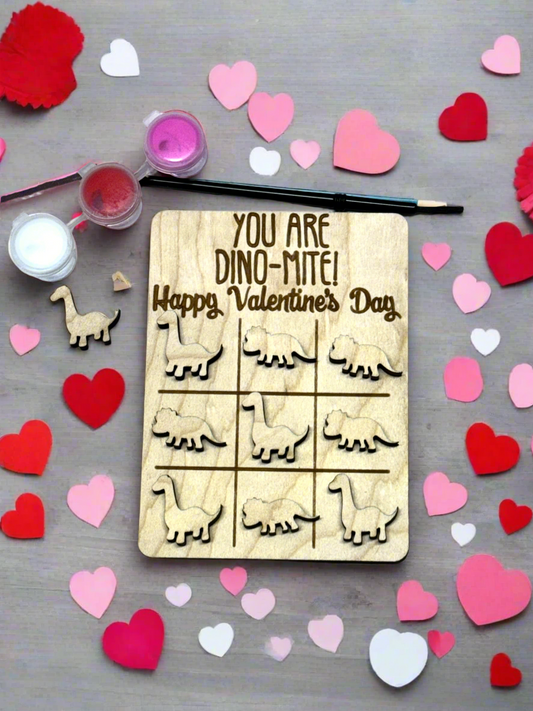 YOU ARE
DINO-MITE!
Happy Valentine's Day